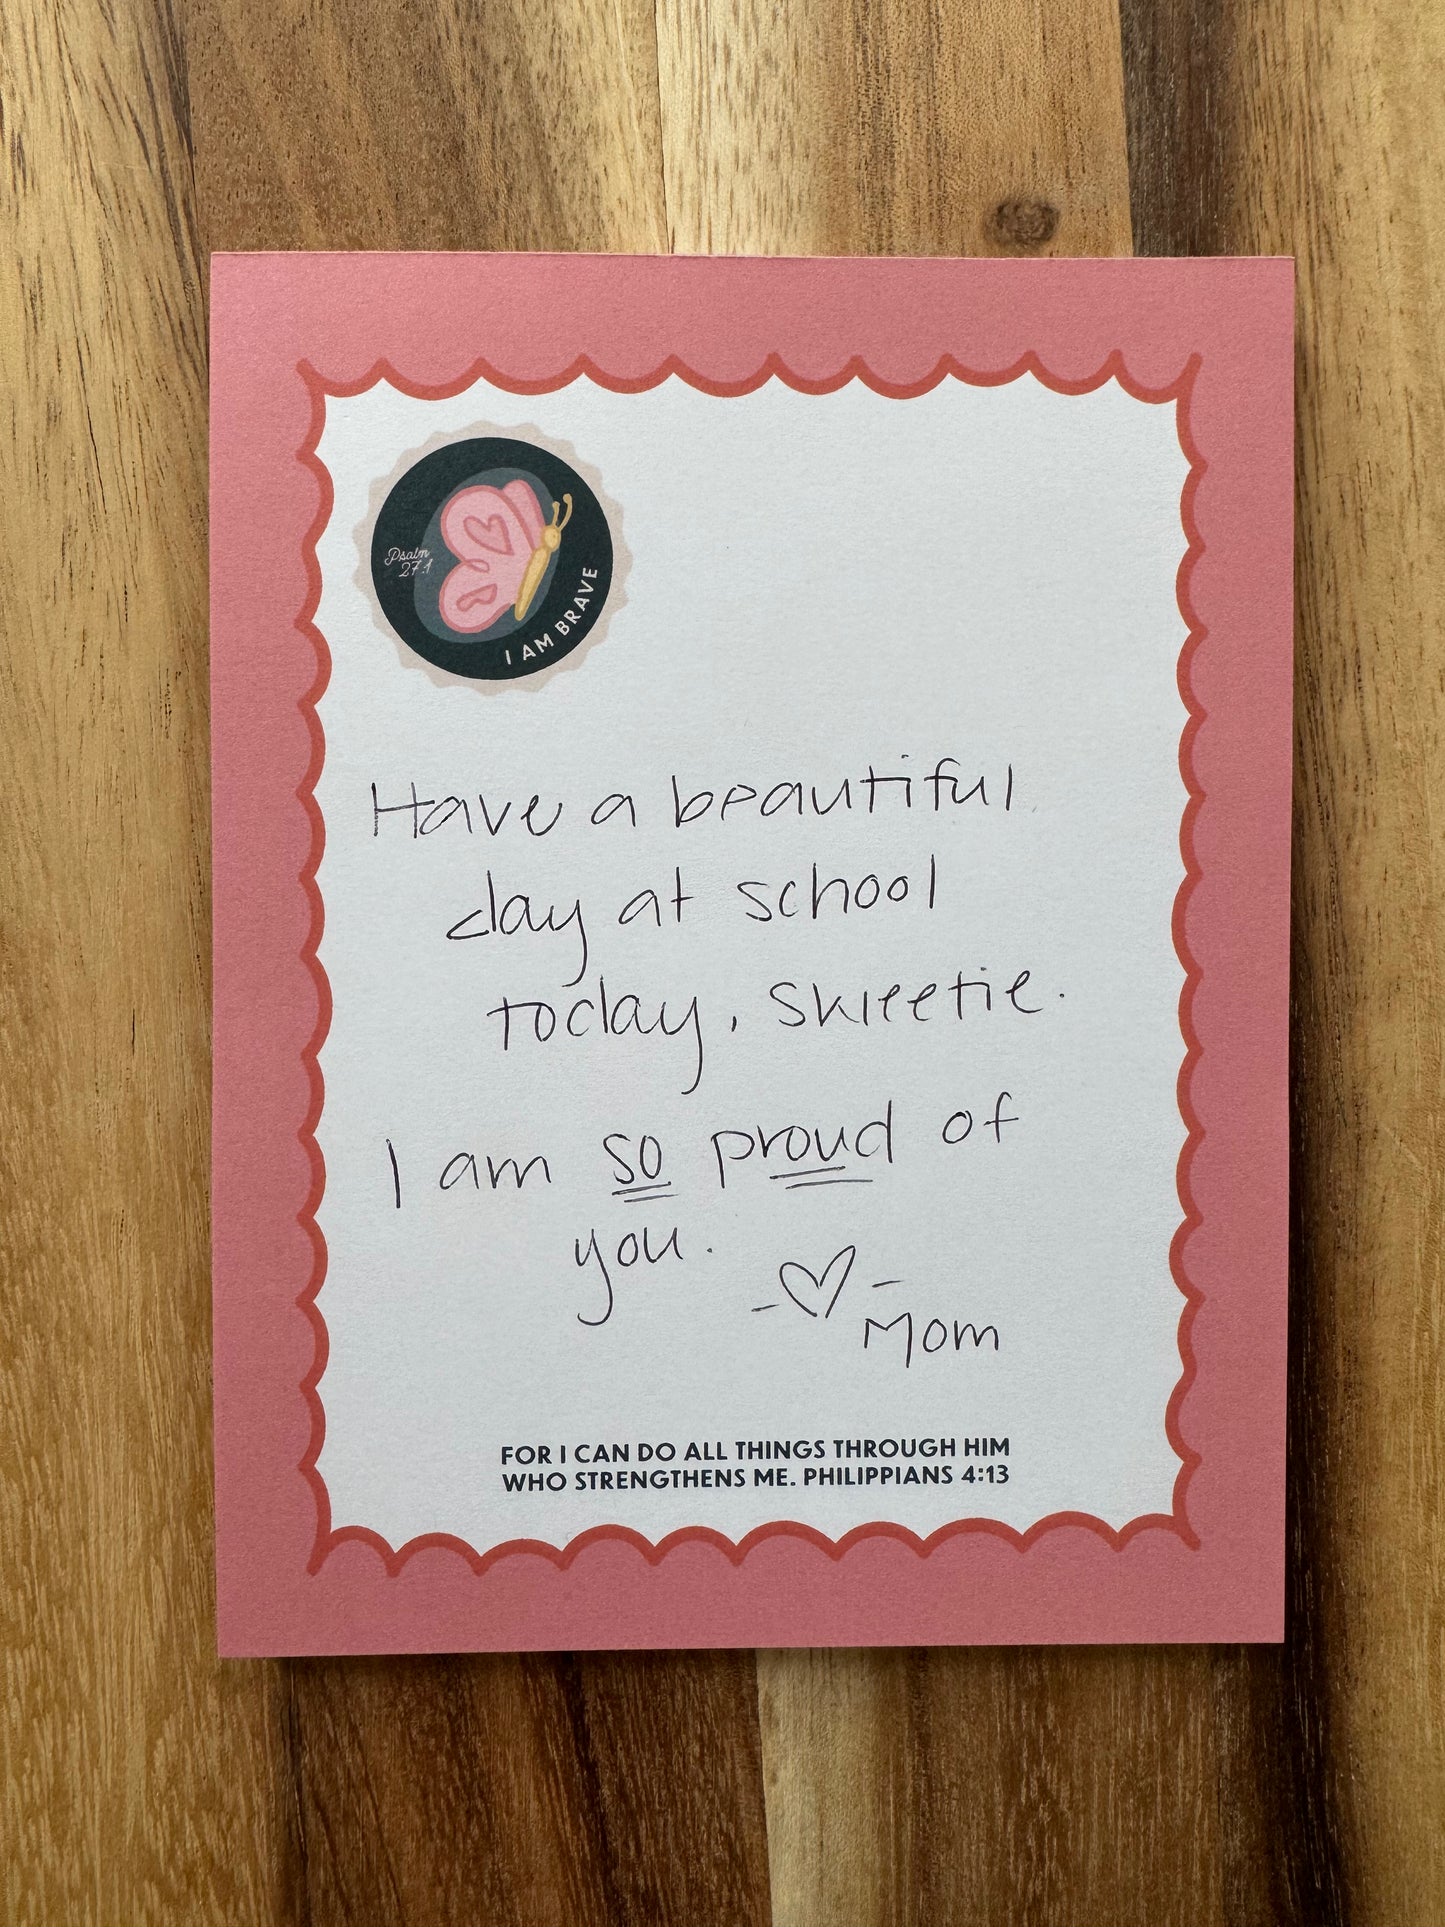 Psalm
27:1
I AM BRAVE
Have a beautiful
day at school
today, skeetie.
I am so proud of
you.
-♡-
Mom
FOR I CAN DO ALL THINGS THROUGH HIM
WHO STRENGTHENS ME. PHILIPPIANS 4:13